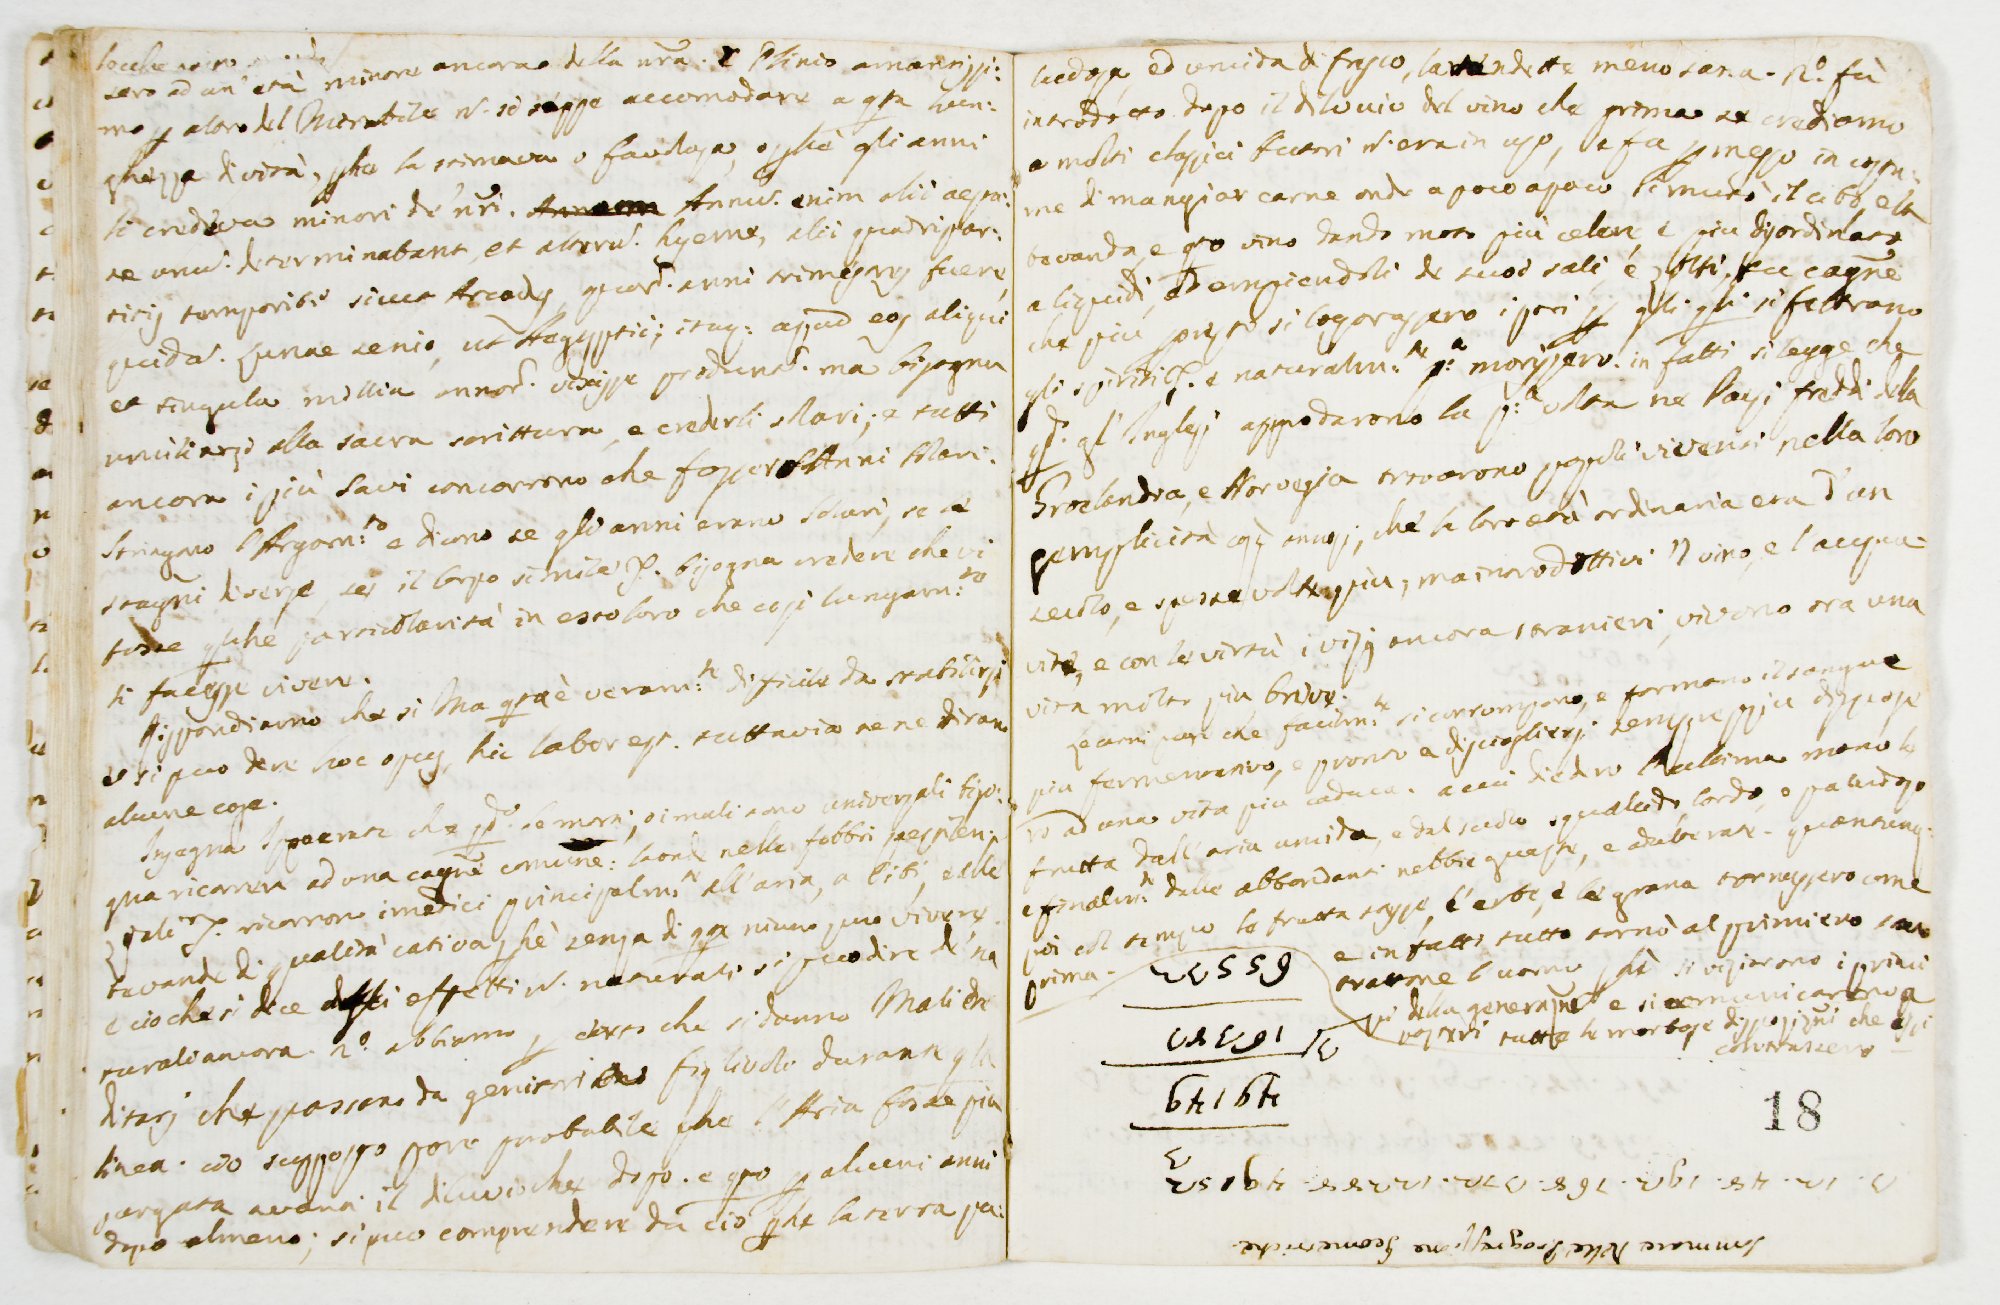 sero ad un' età minore ancora della nr̃a. E Plinio amantissi:
mo p altro del Mirabile n. si seppe accomodare a qta lun:
ghezza di vità, pche la stimava o favolosa, o pchè gli anni
li credeva minori de' nr̃i. Annu. enim alii aesta:
te unu. determinabant, et alteru. hyeme, alii quadripar:
titis temporibus sicut Arcades, quor. anni trimestres fuere,
quida. Lunae senio, ut Aegyptii; itaq: apud eos aliqui
et singula millia annor. vixisse produnt. ma bisogna
umiliarsi alla sacra scrittura, e crederli solari; e tutti
ancora i più savi concorrono che fossero Anni solari.
Stringono l'Argom:to e dicono se gli anni erano solari, se le
stagni diverse, se il corpo simile &. bisogna credere che vi
fosse qlche particolarità in esso loro che così lungam:te
li facesse vivere.
Rispondiamo che si Ma qta è veram:te difficile da stabilirsi
e si può dire hoc opus, hic labor est. tuttavia se ne diran
alcune cose.
Insegna Ipocrate che qdo. se morbi, o i mali sono universali biso:
gna ricorrere ad una cagne comune: laonde nelle febbri pestilen:
ziali &. ricorrono i medici principalm:te all'aria, a cibi, e alle
bevande di qualità cativa pchè senza di qte niuno può vivere.
e cio che si dice degli effetti n. naturali si può dire de' na
turali ancora. No. abbiamo p certo che si danno Mali ere
ditarj che passano da genitori figliuoli durante qlla
linea. ciò supposto pare probabile che l'Aria fosse più
purgata avanti il diluvio che dopo. e qto p alcuni anni
dopo almeno; si può comprendere da ciò che la terra pa:
ludosa, ed umida di fresco, la rendette meno sana. No. fù
introdotto dopo il diluvio del vino che prima se crediamo
a molti classici Autori n. era in uso, e fu pmesso in costu:
me di mangiar carne onde a poco a poco si mutò il cibo, e la
bevanda, e qto vino dando moto più celere, e più disordinato
a liquidi, ed empiendoli de suoi sali, e zolfi, fu cagne
che più presto si logorassero i pori p gli qli si feltrano
gli spiriti &. e naturalm:te pa. morissero. in fatti si legge che
qdo. gl'Inglesi approdarono la p:a volta ne Paesi freddi della
Groelandia, e Norvegia trovarono popoli viventi nella loro
semplicità così annosi, che la loro età ordinaria era d'un
secolo, e spesse volte più; ma introdottivi il vino, e l'acqua-
vite, e con le virtù i vizj ancora stranieri, vivono ora una
vita molto più breve.
Le carni poi che facilm:te si corrompono, e formano il sangue
più fermentativo, e pronto a disciogliersi sempre più disposse
ro ad una vita più caduca. a cui diedero l'ultima mano le
frutta dall'aria umida, e dal suolo squallido lordo, o paludoso
e finalm:te dalle abbondanti nebbie guaste, e adulterate. quantunq:
poi col tempo le frutta stesse, l'erbe, e le grana tornassero come
prima.
e in fatti tutto tornò al primiero sta
trattone l'uomo pchè si viziarono i princi
pi della generazne e si comunicarono a
posteri tutte le morbose disposizni che essi
contrassero
65533
16383
491 49
3
3. 12. 48. 192. 768. 3072. 12288. 49152
Sommare delle Progressione Geometriche
18